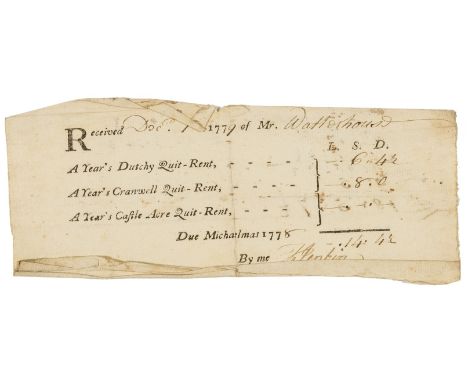 Received Decr. 1 1779 of Mr. Waterhouse
L. S. D.
A Year's Dutchy Quit-Rent, - - - - - 6 - 4½
A Year's Cranwell Quit-Rent, - - - - - 8 - 0
A Year's Castle Acre Quit-Rent, - - - -
Due Michaelmas 1778 - 14 - 4½
By me